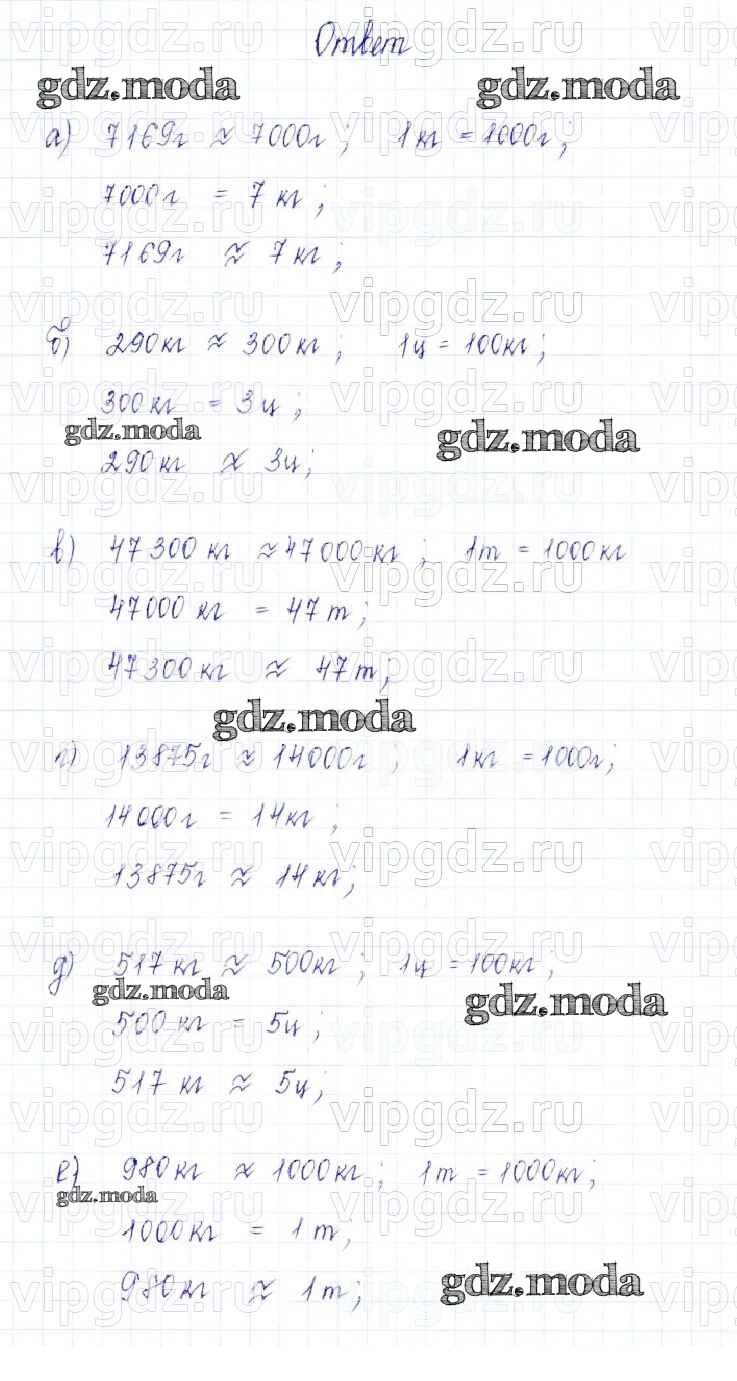 Ответ
gdz.moda gdz.moda
а) 7169г ≈ 7000г ; 1кг = 1000г;
7000г = 7 кг ;
7169г ≈ 7кг ;
б) 290кг ≈ 300кг ; 1ц = 100кг ;
300кг = 3ц ;
gdz.moda gdz.moda
290кг ≈ 3ц ;
в) 47 300 кг ≈ 47 000 кг ; 1т = 1000кг
47000 кг = 47 т ;
47 300 кг ≈ 47 т ;
gdz.moda
г) 13875г ≈ 14000г ; 1кг = 1000г;
14000г = 14кг ;
13875г ≈ 14кг ;
д) 517 кг ≈ 500кг ; 1ц = 100кг ;
gdz.moda gdz.moda
500 кг = 5ц ;
517 кг ≈ 5ц ;
е) 980кг ≈ 1000кг ; 1т = 1000кг ;
gdz.moda
1000кг = 1 т ;
980кг ≈ 1т ;
gdz.moda
vipgdz.ru